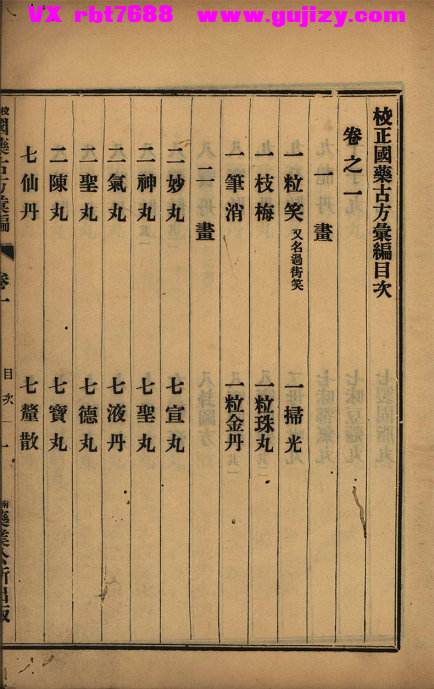 VX rbt7688 www.gujizy.com
校正國藥古方彙編目次
卷之一
一畫
一粒笑又名過街笑 一掃光
一枝梅 一粒珠丸
一筆消 一粒金丹
二畫
二妙丸 七宣丸
二神丸 七聖丸
二氣丸 七液丹
二聖丸 七德丸
二陳丸 七寶丸
七仙丹 七釐散
目次 一